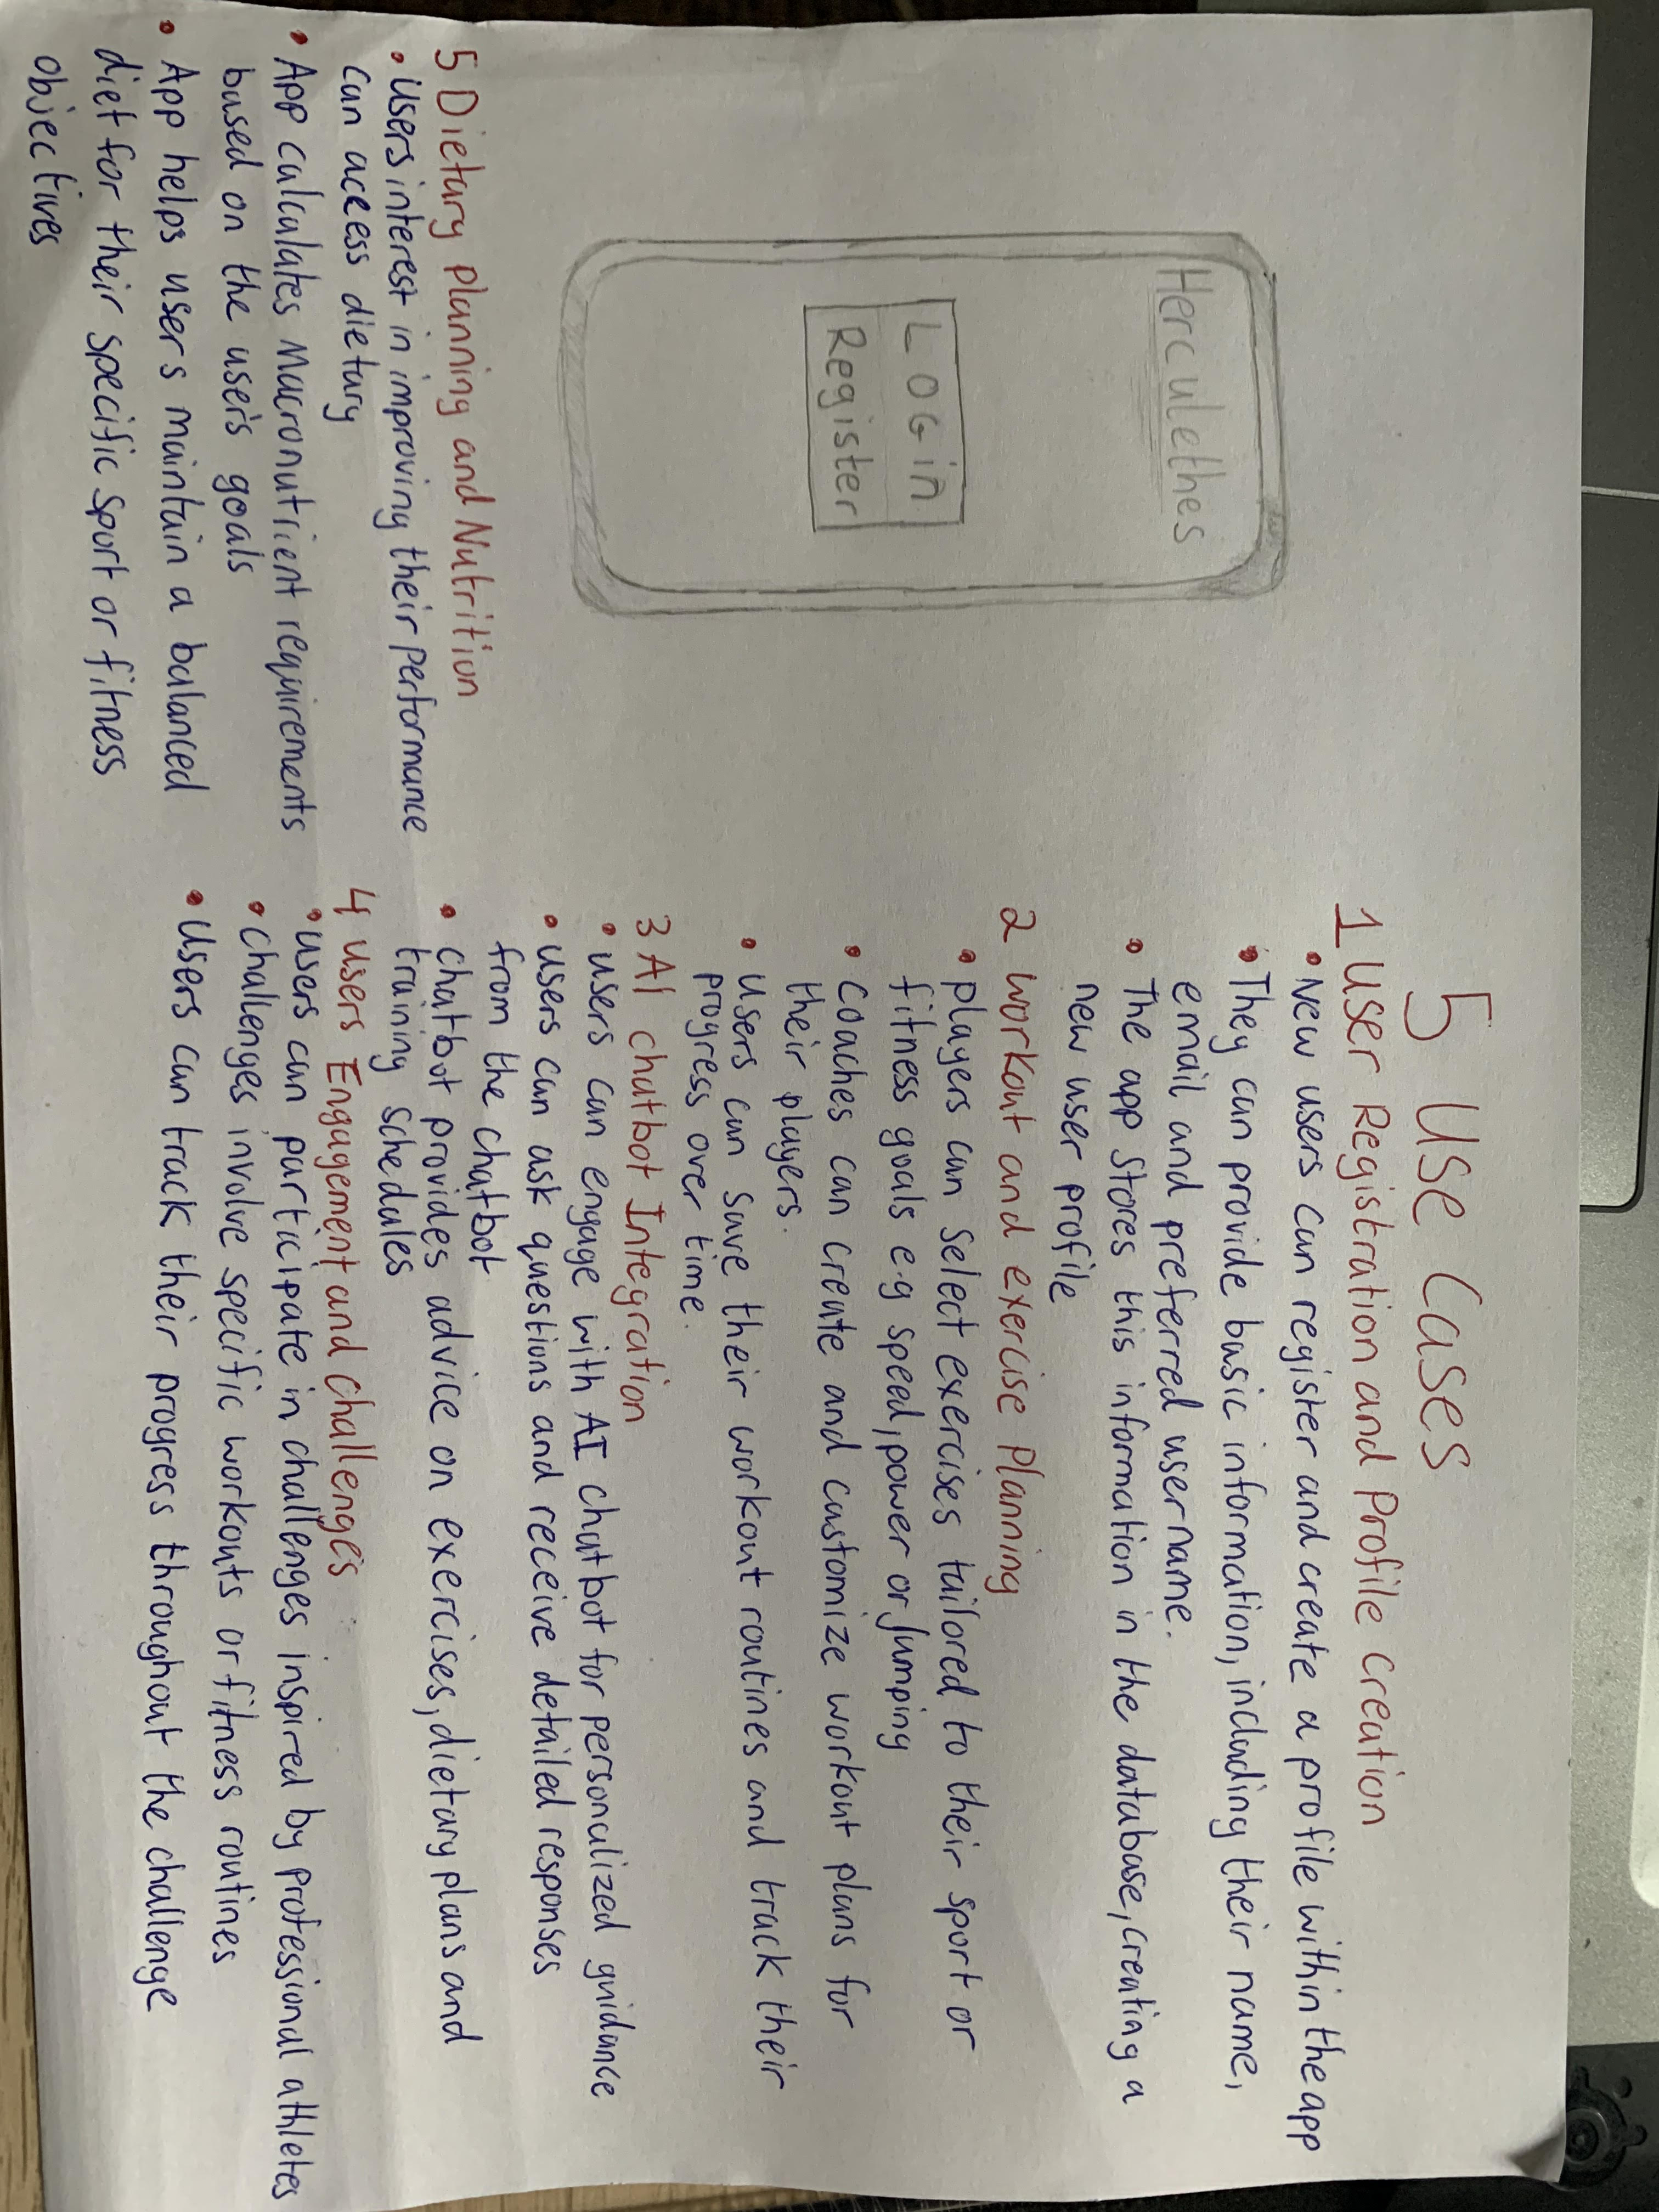 5 Use Cases
1 User Registration and Profile Creation
• New users can register and create a profile within the app
• They can provide basic information, including their name,
email and preferred username.
• The app stores this information in the database, creating a
new user profile
2 Workout and exercise Planning
• players can select exercises tailored to their sport or
fitness goals e.g speed, power or jumping
• Coaches can create and customize workout plans for
their players.
• Users can save their workout routines and track their
progress over time.
3 AI chatbot Integration
• users can engage with AI chatbot for personalized guidance
• users can ask questions and receive detailed responses
from the chatbot
• chatbot provides advice on exercises, dietary plans and
training schedules
4 users Engagement and challenges
• users can participate in challenges inspired by professional athletes
• challenges involve specific workouts or fitness routines
• Users can track their progress throughout the challenge
Herculethes
LOG in
Register
5 Dietary planning and Nutrition
• Users interest in improving their performance
can access dietary
• App calculates Macronutrient requirements
based on the user's goals
• App helps users maintain a balanced
diet for their specific sport or fitness
objectives